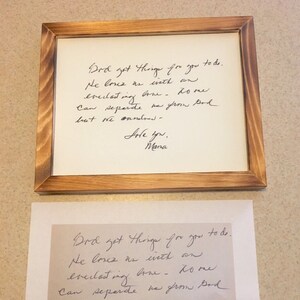 God got things for you to do.
He loves me with an
everlasting love - No one
can separate me from God
but we ourselves -
Love you,
Mama
God got things for you to do.
He loves me with an
everlasting love - No one
can separate me from God